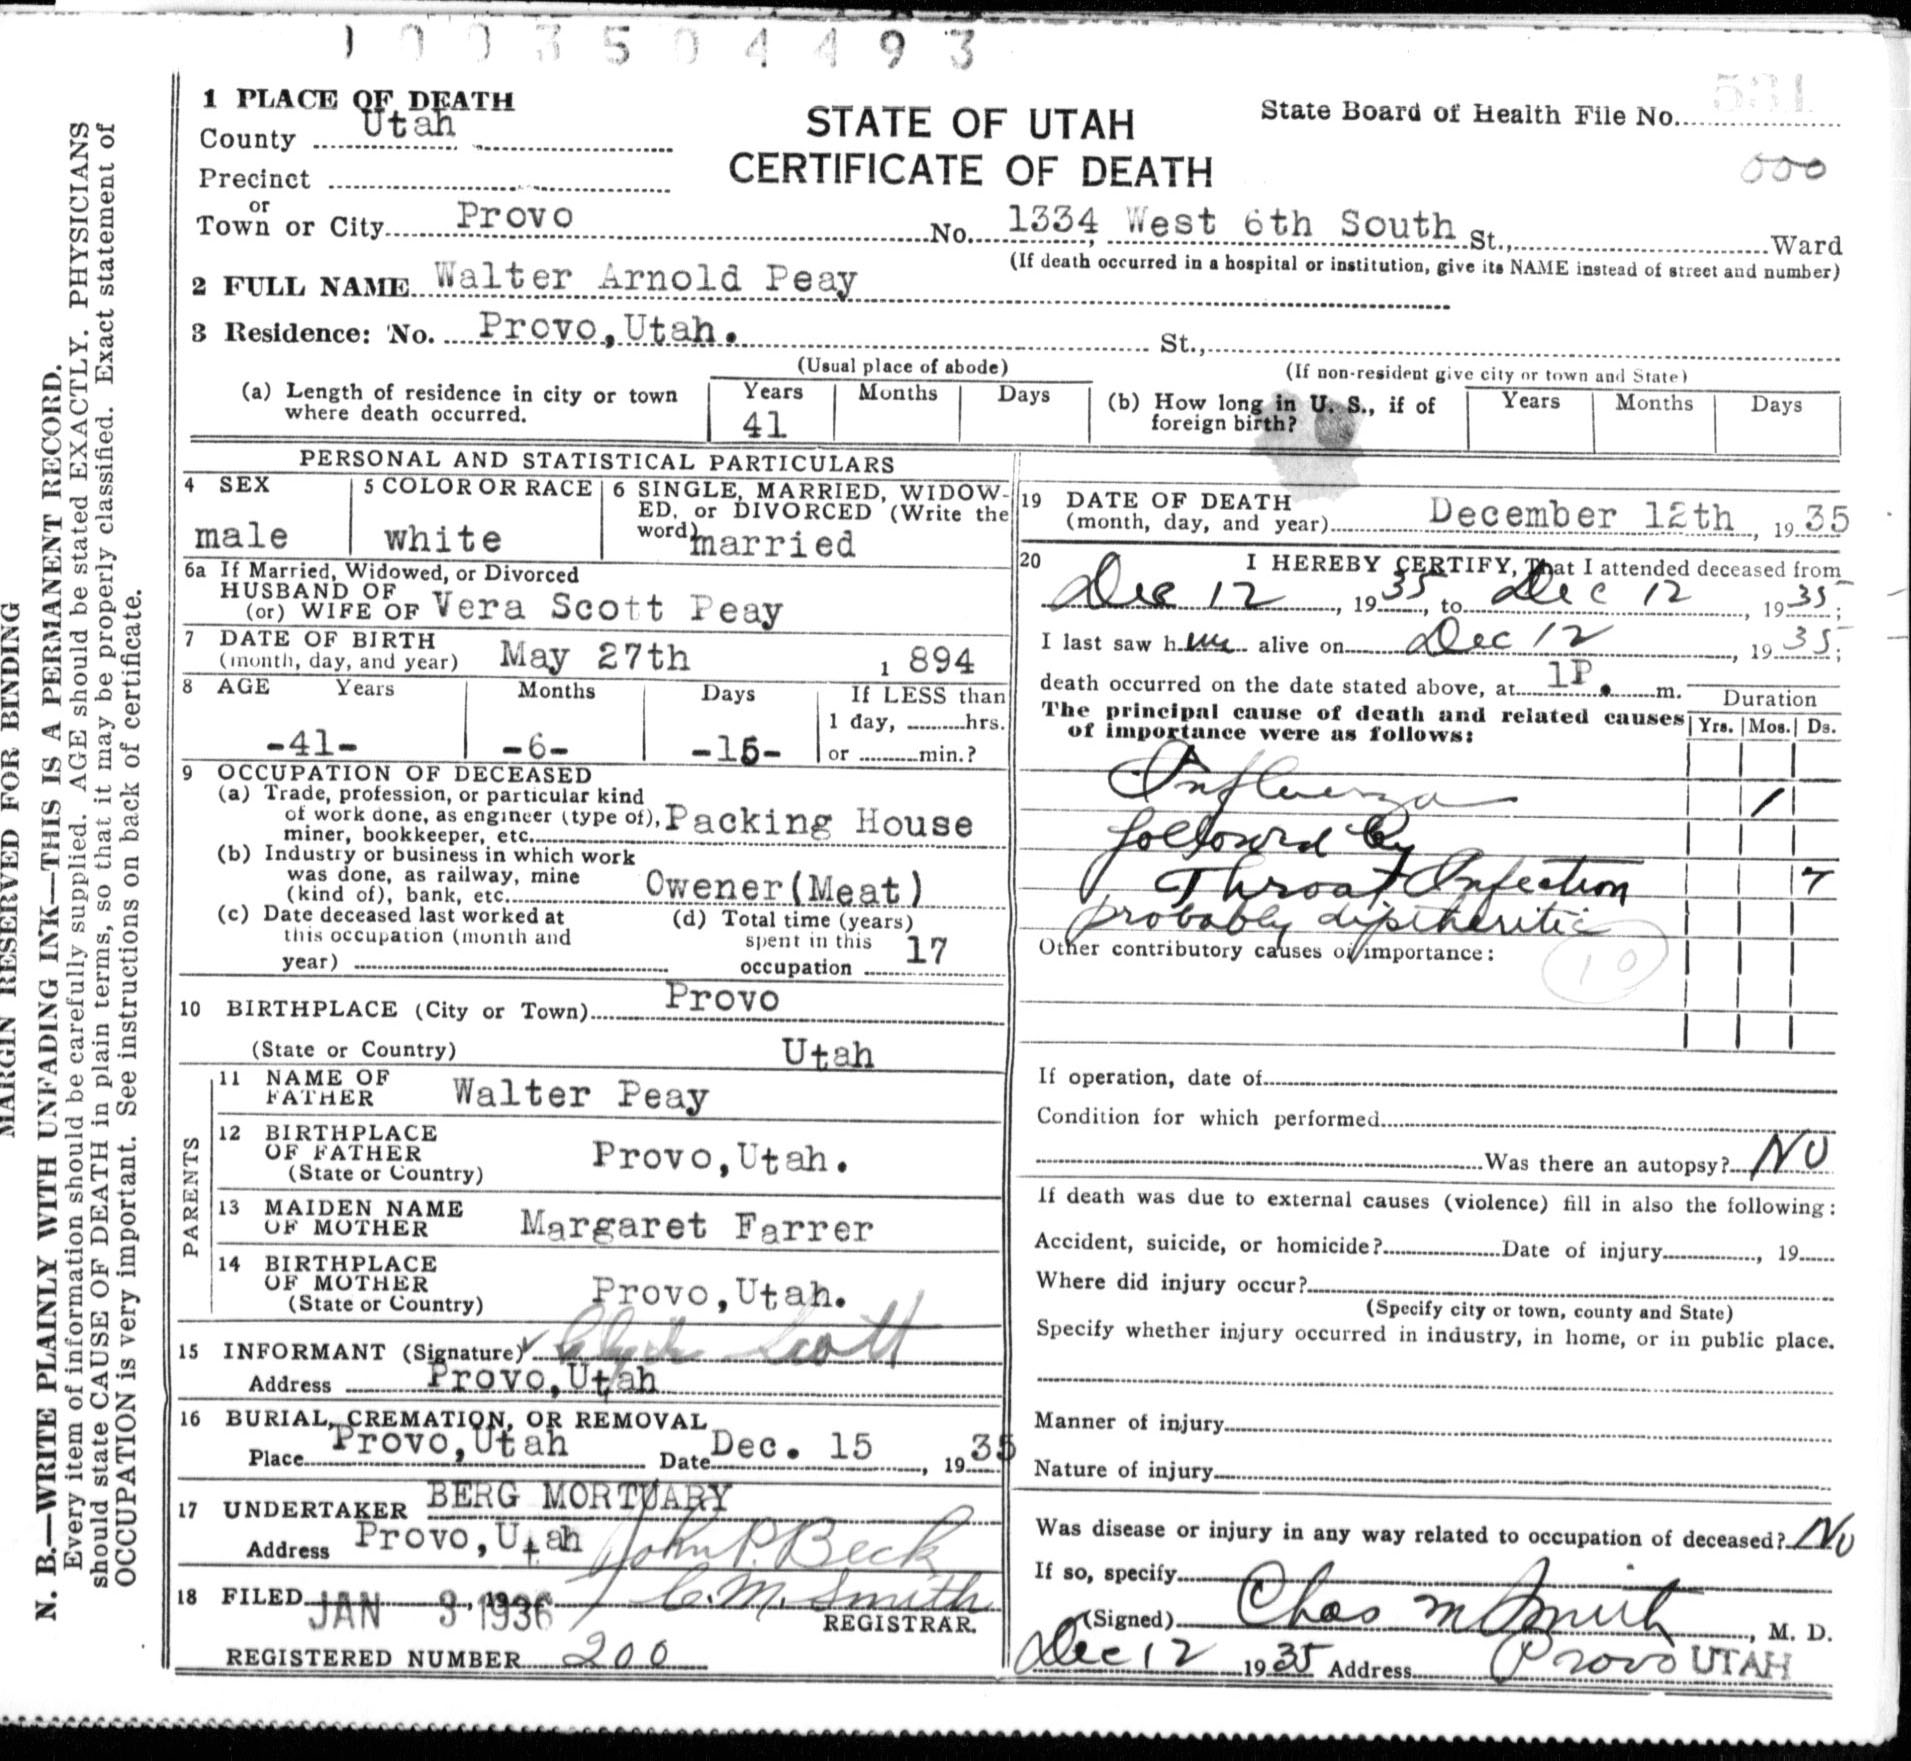 1003504493
1 PLACE OF DEATH
County Utah
Precinct
or
Town or City Provo No. 1334 West 6th South St., Ward
(If death occurred in a hospital or institution, give its NAME instead of street and number)
STATE OF UTAH
CERTIFICATE OF DEATH
State Board of Health File No. 531
000
2 FULL NAME Walter Arnold Peay
3 Residence: No. Provo,Utah. St.,
(Usual place of abode) (If non-resident give city or town and State)
(a) Length of residence in city or town where death occurred. Years 41 Months Days
(b) How long in U. S., if of foreign birth? Years Months Days
PERSONAL AND STATISTICAL PARTICULARS
4 SEX male
5 COLOR OR RACE white
6 SINGLE, MARRIED, WIDOW-
ED, or DIVORCED (Write the
word) married
6a If Married, Widowed, or Divorced
HUSBAND OF
(or) WIFE OF Vera Scott Peay
7 DATE OF BIRTH
(month, day, and year) May 27th 1 894
8 AGE Years Months Days If LESS than
1 day, hrs.
-41- -6- -15- or min.?
9 OCCUPATION OF DECEASED
(a) Trade, profession, or particular kind
of work done, as engineer (type of), Packing House
miner, bookkeeper, etc.
(b) Industry or business in which work
was done, as railway, mine
(kind of), bank, etc. Owener(Meat)
(c) Date deceased last worked at
this occupation (month and
year)
(d) Total time (years)
spent in this
occupation 17
10 BIRTHPLACE (City or Town) Provo
(State or Country) Utah
PARENTS
11 NAME OF
FATHER Walter Peay
12 BIRTHPLACE
OF FATHER
(State or Country) Provo,Utah.
13 MAIDEN NAME
OF MOTHER Margaret Farrer
14 BIRTHPLACE
OF MOTHER
(State or Country) Provo,Utah.
15 INFORMANT (Signature) Clyde Scott
Address Provo,Utah
16 BURIAL, CREMATION, OR REMOVAL
Place Provo,Utah Date Dec. 15, 1935
17 UNDERTAKER BERG MORTUARY
Address Provo,Utah John P. Beck
18 FILED JAN 3 1936, 19 C.M. Smith
REGISTRAR.
REGISTERED NUMBER 200
19 DATE OF DEATH
(month, day, and year) December 12th, 1935
20 I HEREBY CERTIFY, That I attended deceased from
Dec 12, 1935, to Dec 12, 1935;
I last saw him alive on Dec 12, 1935;
death occurred on the date stated above, at 1P. m.
Duration
The principal cause of death and related causes
of importance were as follows:
Yrs. Mos. Ds.
Influenza 1
followed by
Throat Infection 7
probably diptheritic
Other contributory causes of importance:
10
If operation, date of
Condition for which performed
Was there an autopsy? NO
If death was due to external causes (violence) fill in also the following:
Accident, suicide, or homicide? Date of injury, 19
Where did injury occur?
(Specify city or town, county and State)
Specify whether injury occurred in industry, in home, or in public place.
Manner of injury
Nature of injury
Was disease or injury in any way related to occupation of deceased? No
If so, specify
(Signed) Chas M Smith, M. D.
Dec 12 1935 Address Provo UTAH
MARGIN RESERVED FOR BINDING
N. B.—WRITE PLAINLY WITH UNFADING INK—THIS IS A PERMANENT RECORD.
Every item of information should be carefully supplied. AGE should be stated EXACTLY. PHYSICIANS
should state CAUSE OF DEATH in plain terms, so that it may be properly classified. Exact statement of
OCCUPATION is very important. See instructions on back of certificate.